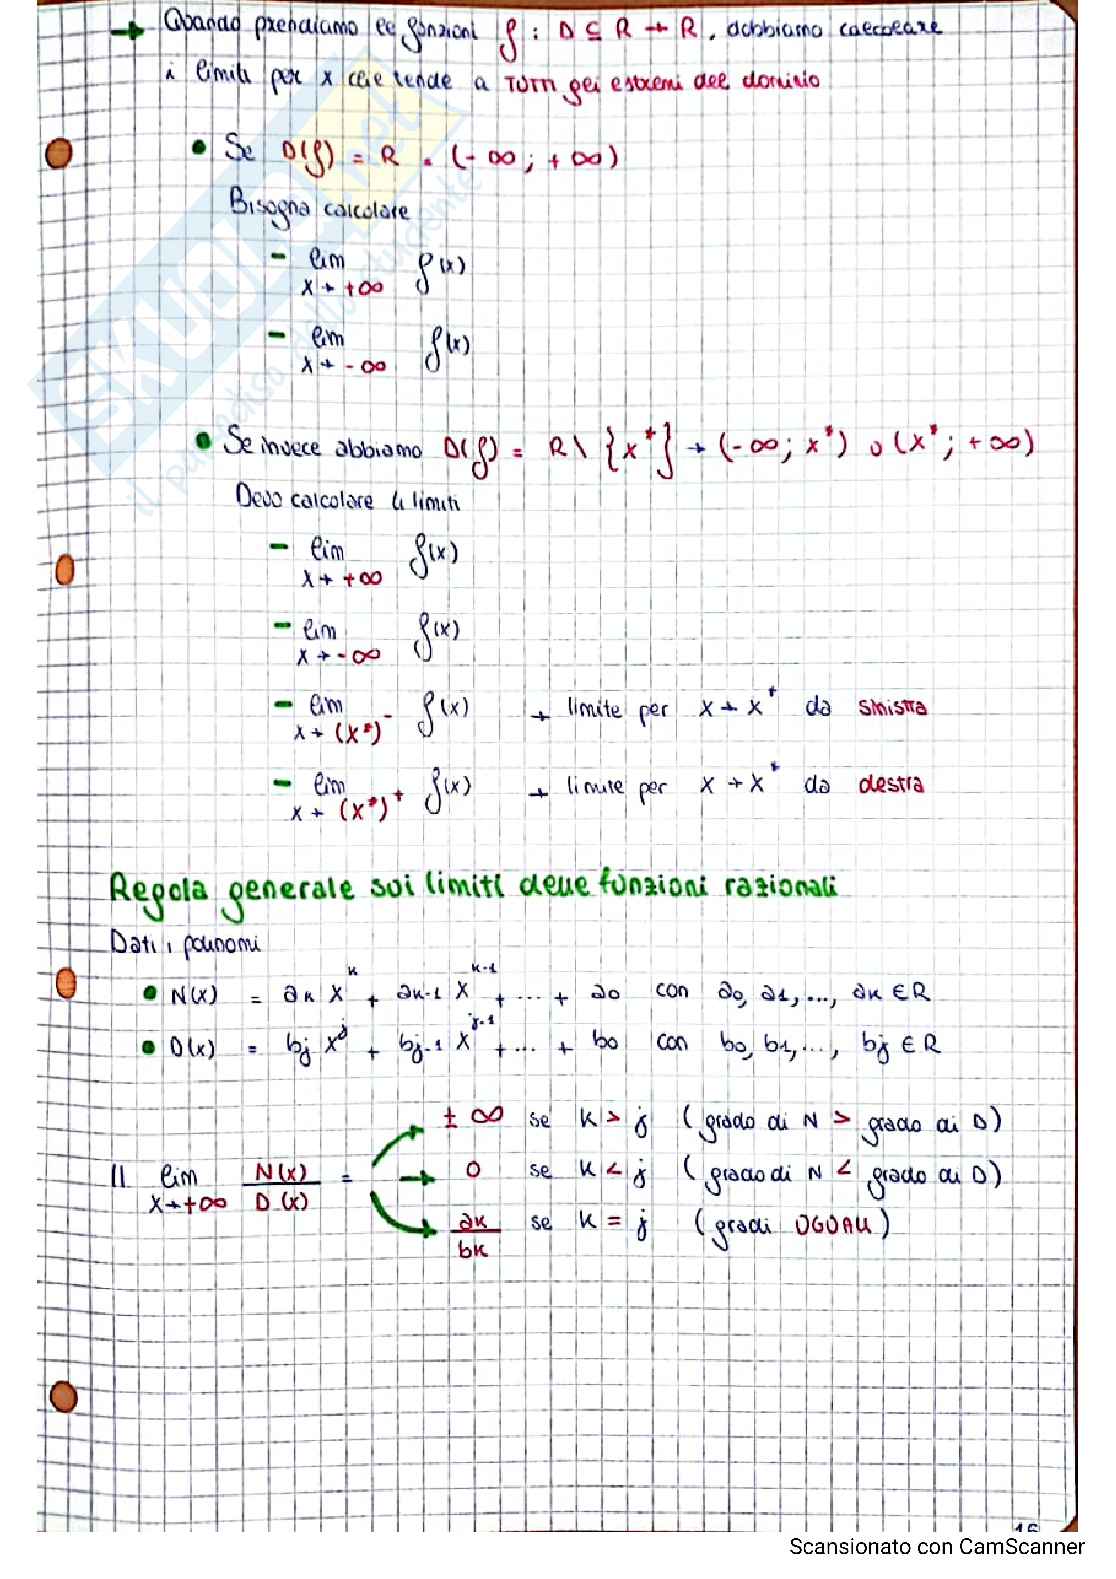 → Quando prendiamo le funzioni f : D ⊆ R → R, dobbiamo calcolare
i limiti per x che tende a TUTTI gli estremi del dominio
• Se D(f) = R = (-∞; +∞)
Bisogna calcolare
- lim f(x)
x → +∞
- lim f(x)
x → -∞
• Se invece abbiamo D(f) = R \ {x*} → (-∞; x*) ∪ (x*; +∞)
Devo calcolare 4 limiti
- lim f(x)
x → +∞
- lim f(x)
x → -∞
- lim f(x) → limite per x → x* da sinistra
x → (x*)⁻
- lim f(x) → limite per x → x* da destra
x → (x*)⁺
Regola generale sui limiti delle funzioni razionali
Dati i polinomi
• N(x) = aₖ xᵏ + aₖ₋₁ xᵏ⁻¹ + ... + a₀ con a₀, a₁, ..., aₖ ∈ R
• D(x) = bⱼ xʲ + bⱼ₋₁ xʲ⁻¹ + ... + b₀ con b₀, b₁, ..., bⱼ ∈ R
± ∞ se k > j (grado di N > grado di D)
Il lim N(x) / D(x) = → 0 se k < j (grado di N < grado di D)
x → +∞
aₖ / bₖ se k = j (gradi UGUALI)
16
SKUOLA.net
il paradiso dello studente
Scansionato con CamScanner